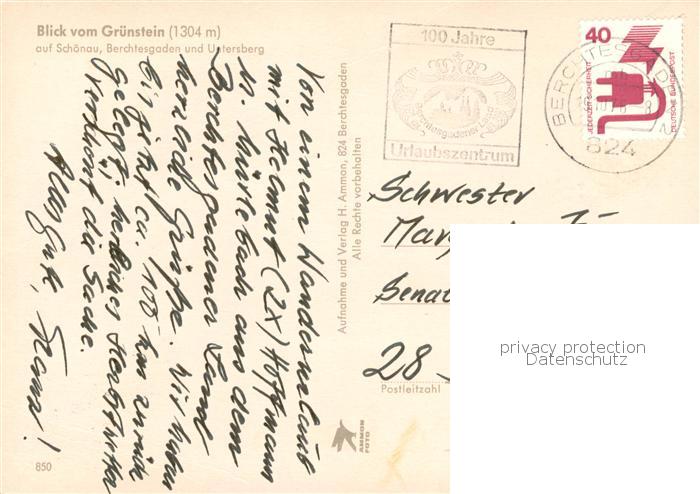 Blick vom Grünstein (1304 m)
auf Schönau, Berchtesgaden und Untersberg
Von einem Wanderurlaub
mit Helmut (2x) Hoffmann
u. aus dem
Berchtesgadener Land
herzliche Grüße. Wir haben
bis jetzt ca. 100 km zurück
gelegt, herrliches Herbstwetter
verschönt die Sache.
Alles Gute,
850
Aufnahme und Verlag H. Ammon, 824 Berchtesgaden
Alle Rechte vorbehalten
AMMON
FOTO
100 Jahre
Berchtesgadener Land
Urlaubszentrum
BERCHTESGADEN
824
40
JEDERZEIT SICHERHEIT
DEUTSCHE BUNDESPOST
Schwester
Senat
28
Postleitzahl
privacy protection
Datenschutz